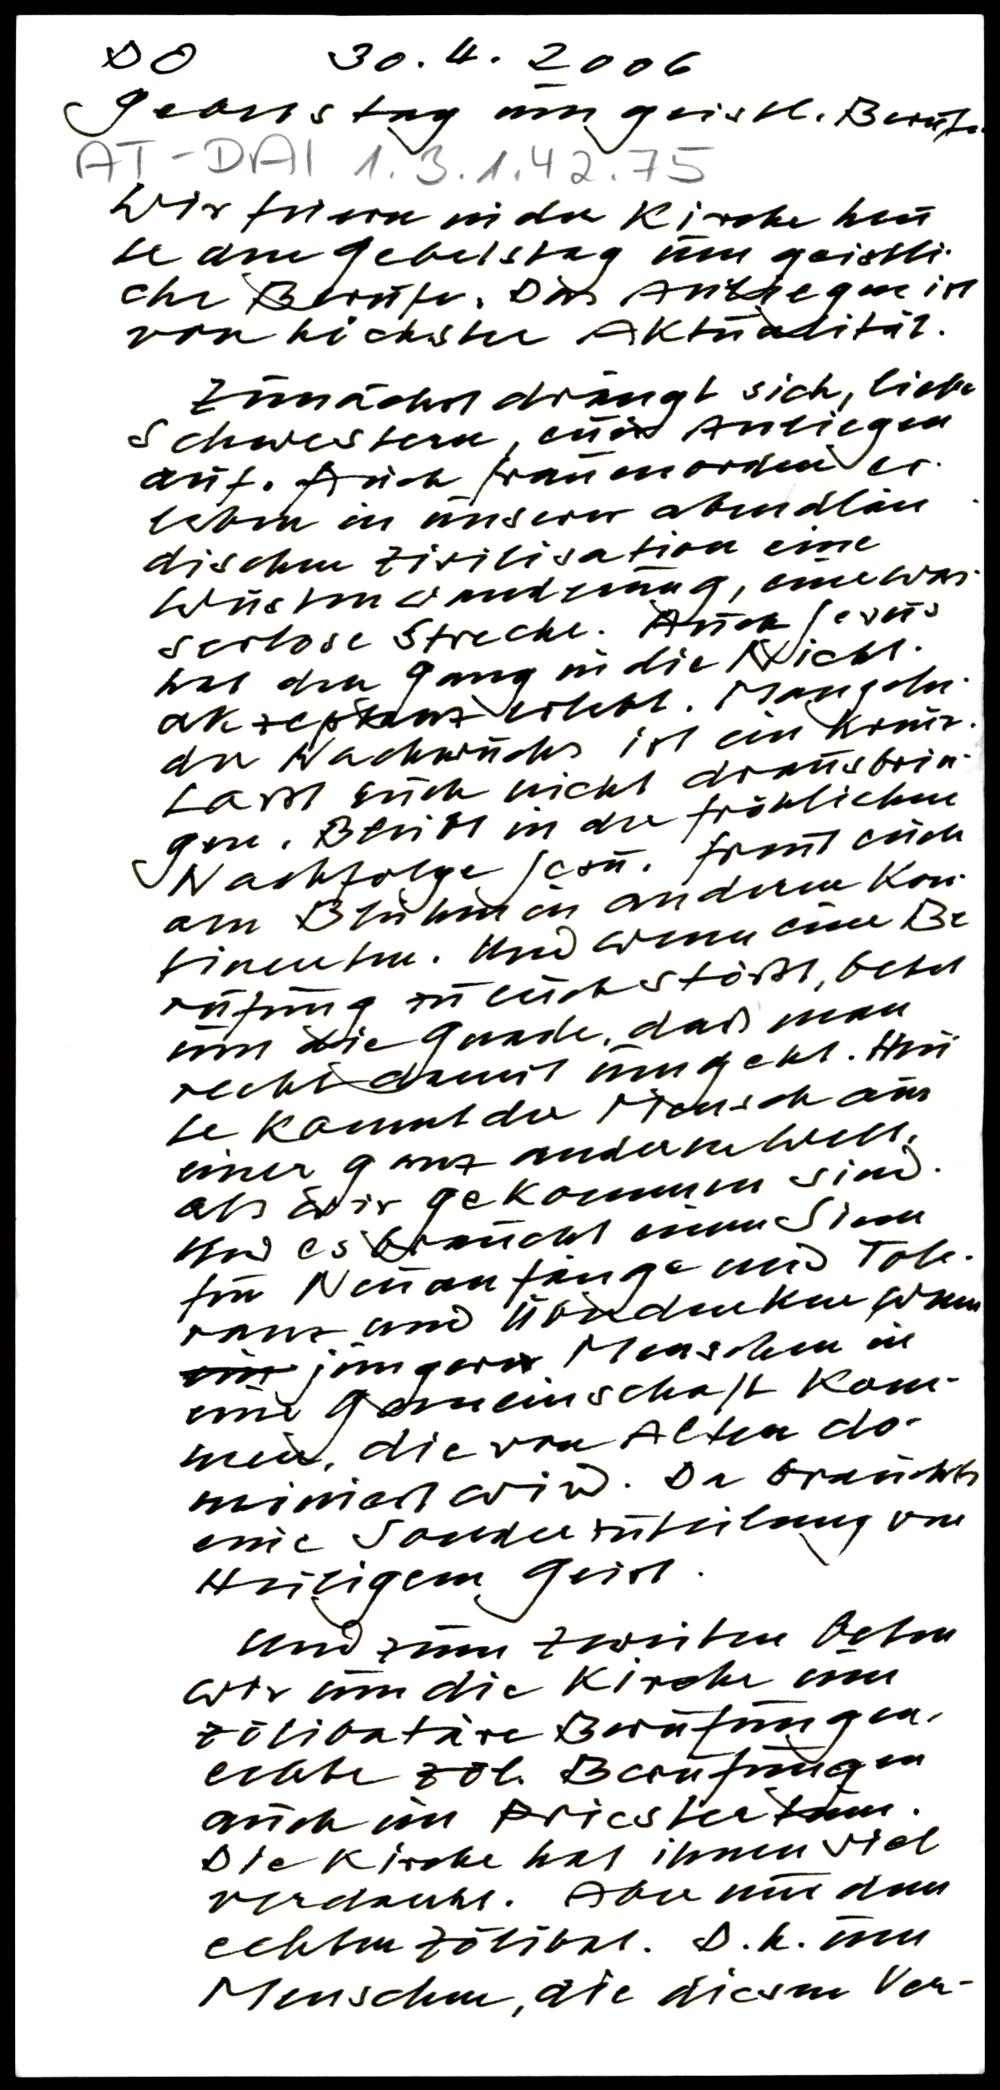 DO 30.4.2006
Gebetstag um geistl. Berufe
AT-DAI 1.3.1.42.75
Wir feiern in der Kirche heu
te den Gebetstag um geistli-
che Berufe. Das Anliegen ist
von höchster Aktualität.
Zunächst drängt sich, liebe
Schwestern, euer Anliegen
auf. Auch Frauenorden er-
leben in unserer abendlän-
dischen Zivilisation eine
Wüstenwanderung, eine was-
serlose Strecke. Auch Jesus
hat den Gang in die Nicht-
akzeptanz erlebt. Mangeln-
der Nachwuchs ist ein Kreuz.
Lasst euch nicht drausbrin-
gen. Bleibt in der fröhlichen
Nachfolge Jesu. Freut euch
am Blühen in anderen Kon-
tinenten. Und wenn eine Be
rufung zu euch stößt, betet
um die Gnade, daß man
recht damit umgeht. Heu
te kommt der Mensch aus
einer ganz anderen Welt,
als wir gekommen sind.
Und es braucht einen Sinn
für Neuanfänge und Tole-
ranz und Überdenken wenn
ein jüngere Menschen in
eine Gemeinschaft kom-
men, die von Alten do-
miniert wird. Da brauchts
eine Sonderzuteilung von
Heiligem Geist.
Und zum zweiten beten
wir um die Kirche um
zölibatäre Berufungen,
echte zöl. Berufungen
auch im Priestertum.
Die Kirche hat ihnen viel
verdankt. Aber nur dem
echten Zölibat. D.h. um
Menschen, die diesen Ver-